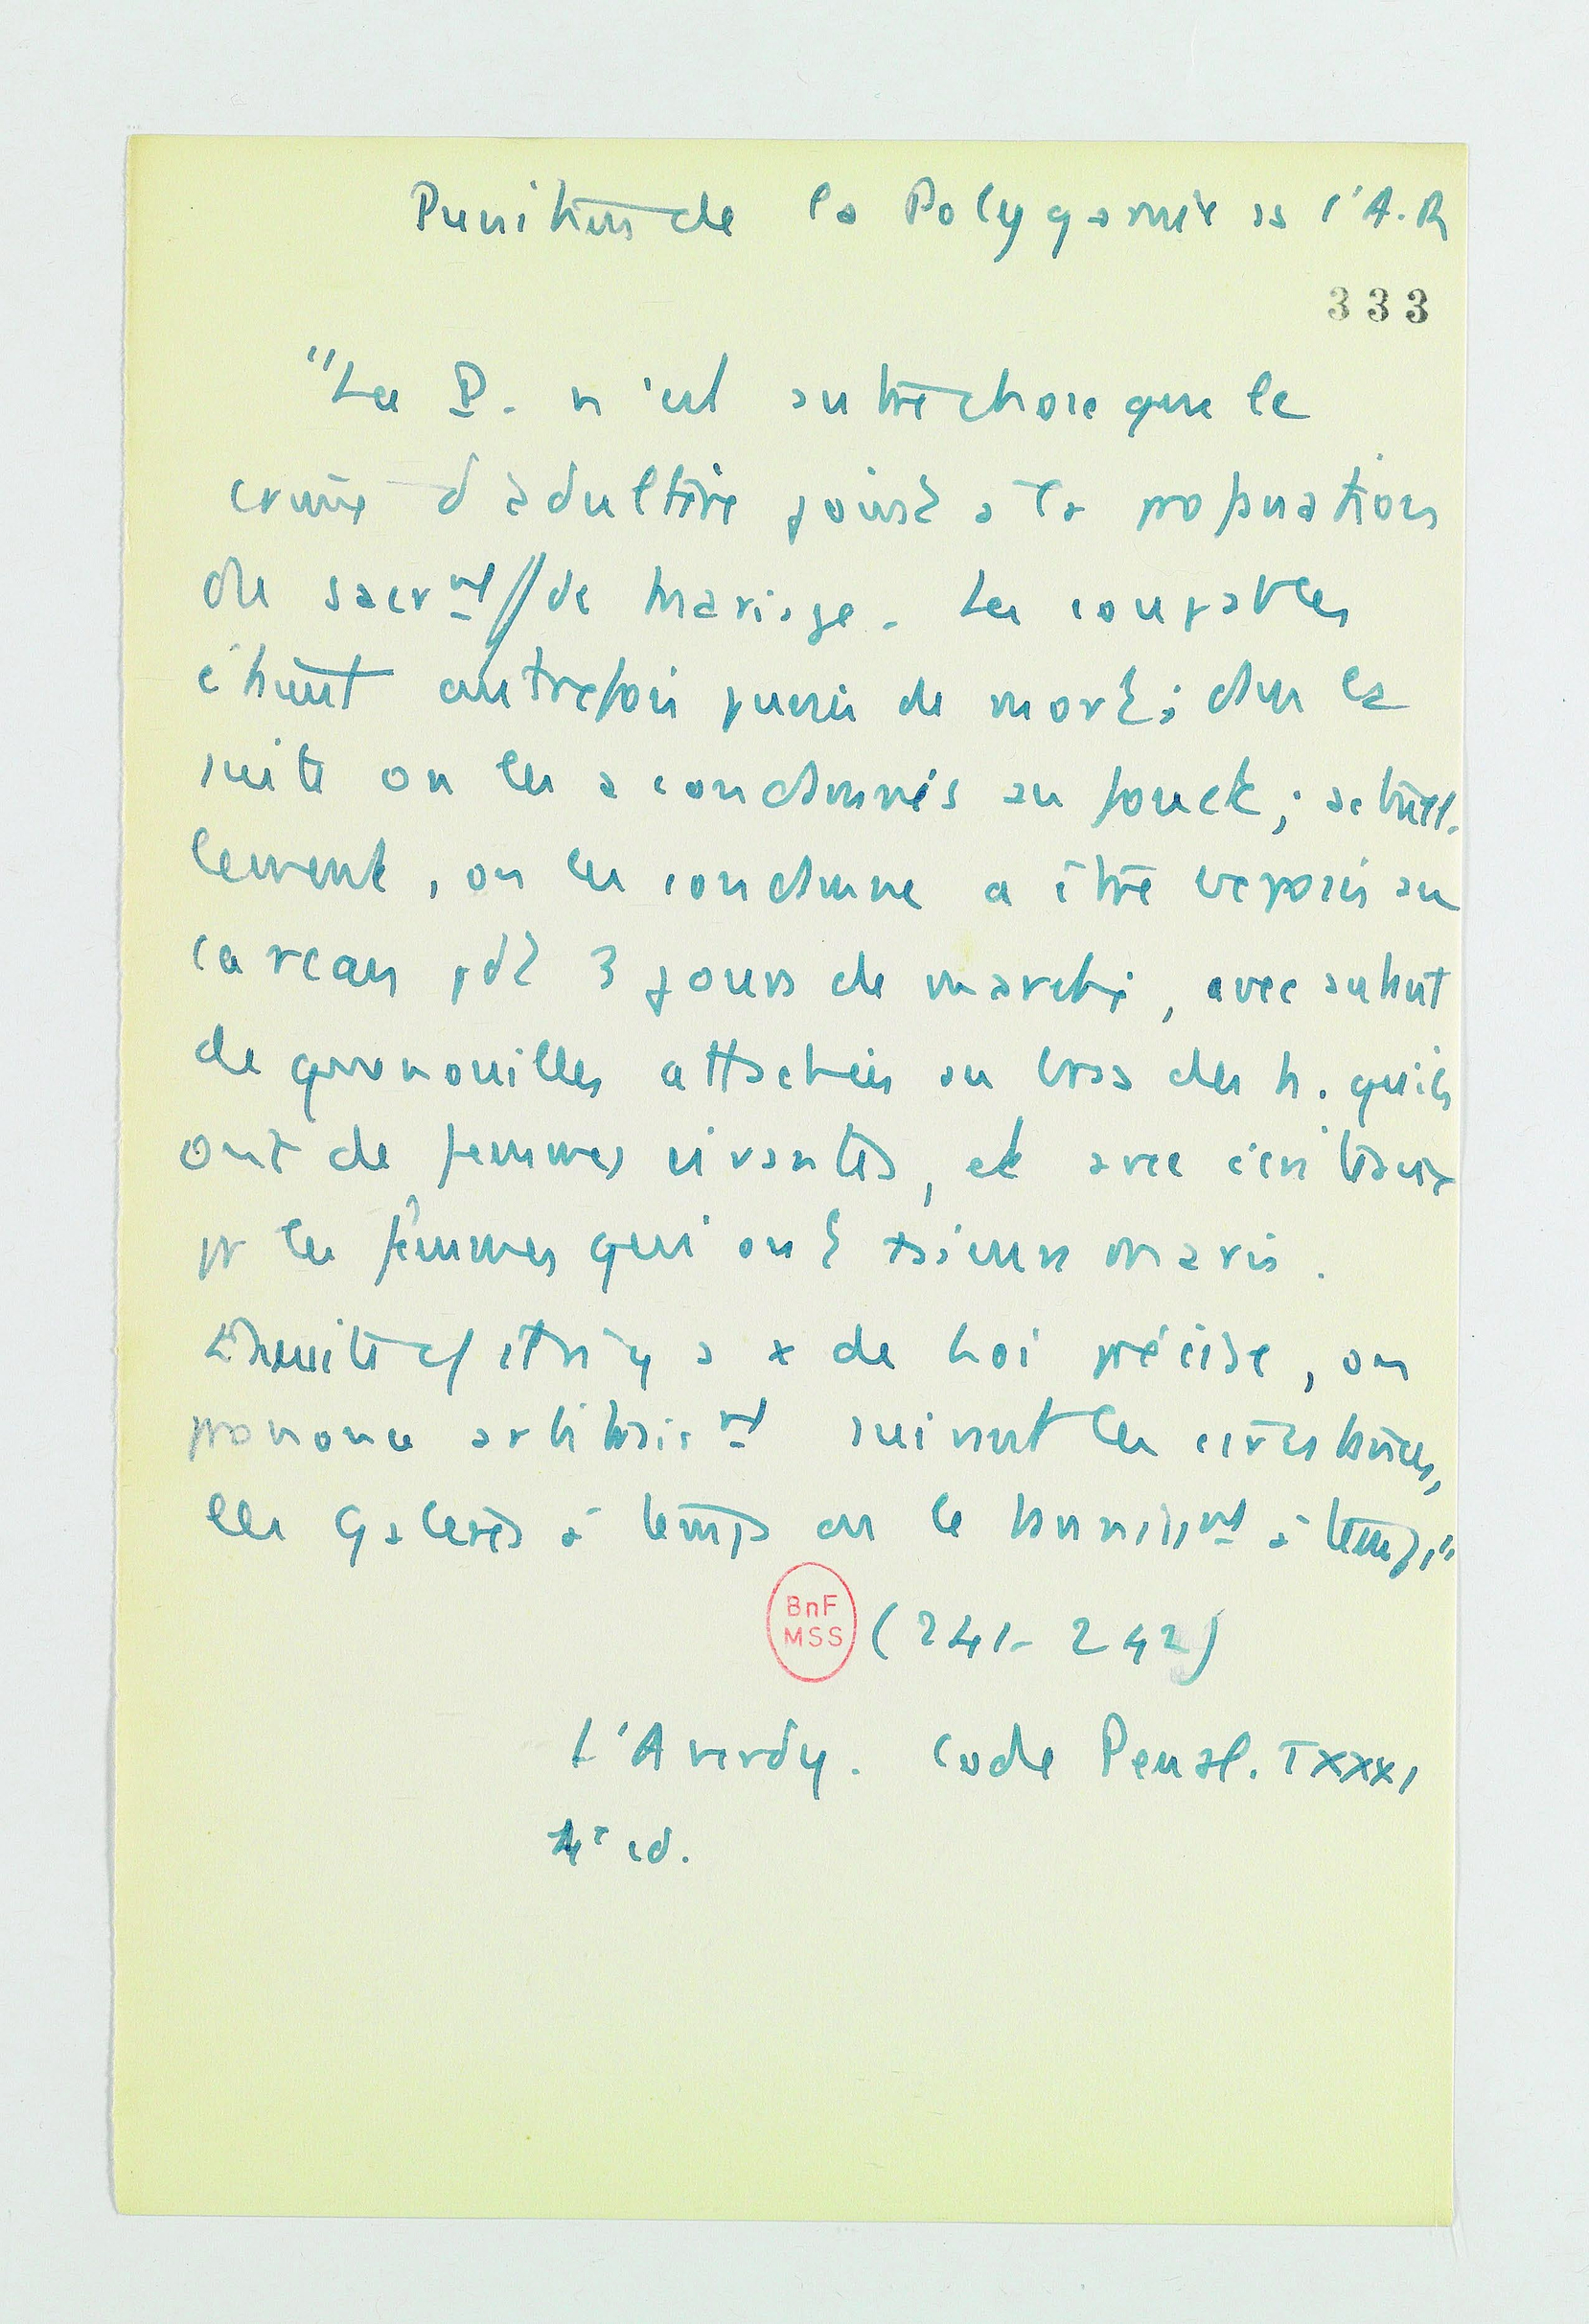 Punition de la Polygamie ds l'A.R
333
"La P. n'est autre chose que le
crime d'adultère joint à la profanation
du sacrmt de mariage. Les coupables
étaient autrefois punis de mort; dans la
suite on les a condamnés au fouet; actuel-
lement, on les condamne à être exposés au
carcan pdt 3 jours de marché, avec autant
de quenouilles attachées au bras des h. qu'ils
ont de femmes vivantes, et avec écriteaux
pr les femmes qui ont plusieurs maris.
Ensuite cf il n'y a x de Loi précise, on
prononce arbitrairmt suivant les circonstances,
les galères à temps ou le bannissmt à temps"
BnF
MSS
(241-242)
L'Averdy. Code Penal. TXXXI
4e éd.